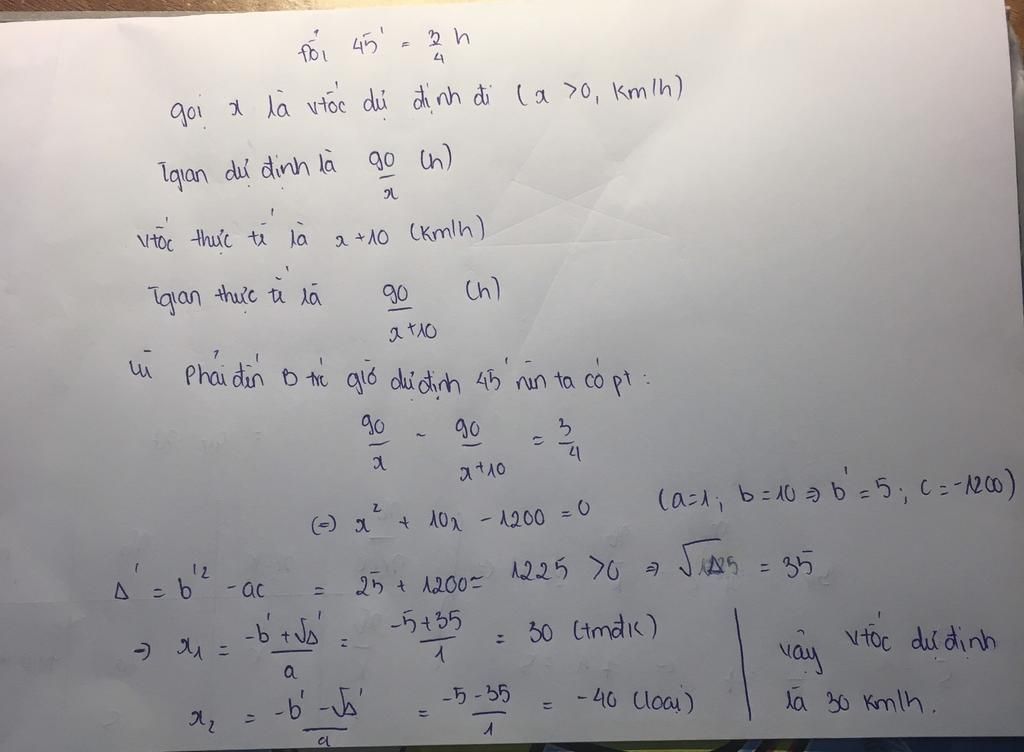 Đổi 45' = 3/4 h
gọi x là vtốc dự định đi (x >0, km/h)
Tgian dự định là 90/x (h)
vtốc thực tế là x+10 (km/h)
Tgian thực tế là 90/x+10 (h)
Vì phải đến B trc giờ dự định 45' nên ta có pt :
90/x - 90/x+10 = 3/4
(=) x² + 10x - 1200 = 0 (a=1; b=10 => b' = 5; c=-1200)
Δ' = b'² - ac = 25 + 1200 = 1225 >0 => √Δ = 35
=> x₁ = -b'+√Δ'/a = -5+35/1 = 30 (tmđk)
x₂ = -b'-√Δ'/a = -5-35/1 = -40 (loại)
vậy vtốc dự định
là 30 km/h.